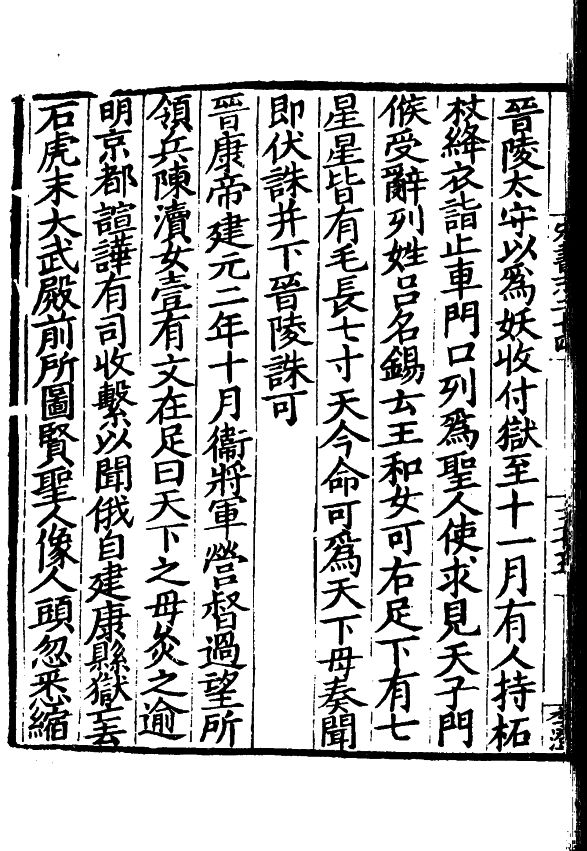 晉陵太守以爲妖收付獄至十一月有人持柘
杖絳衣詣止車門口列爲聖人使求見天子門
候受辭列姓吕名錫云王和女可右足下有七
星星皆有毛長七寸天今命可爲天下母奏聞
即伏誅并下晉陵誅可
晉康帝建元二年十月衞將軍營督過望所
領兵陳瀆女壹有文在足曰天下之母灸之逾
明京都諠譁有司收繫以聞俄自建康縣獄亡去
石虎末大武殿前所圖賢聖人像人頭忽悉縮